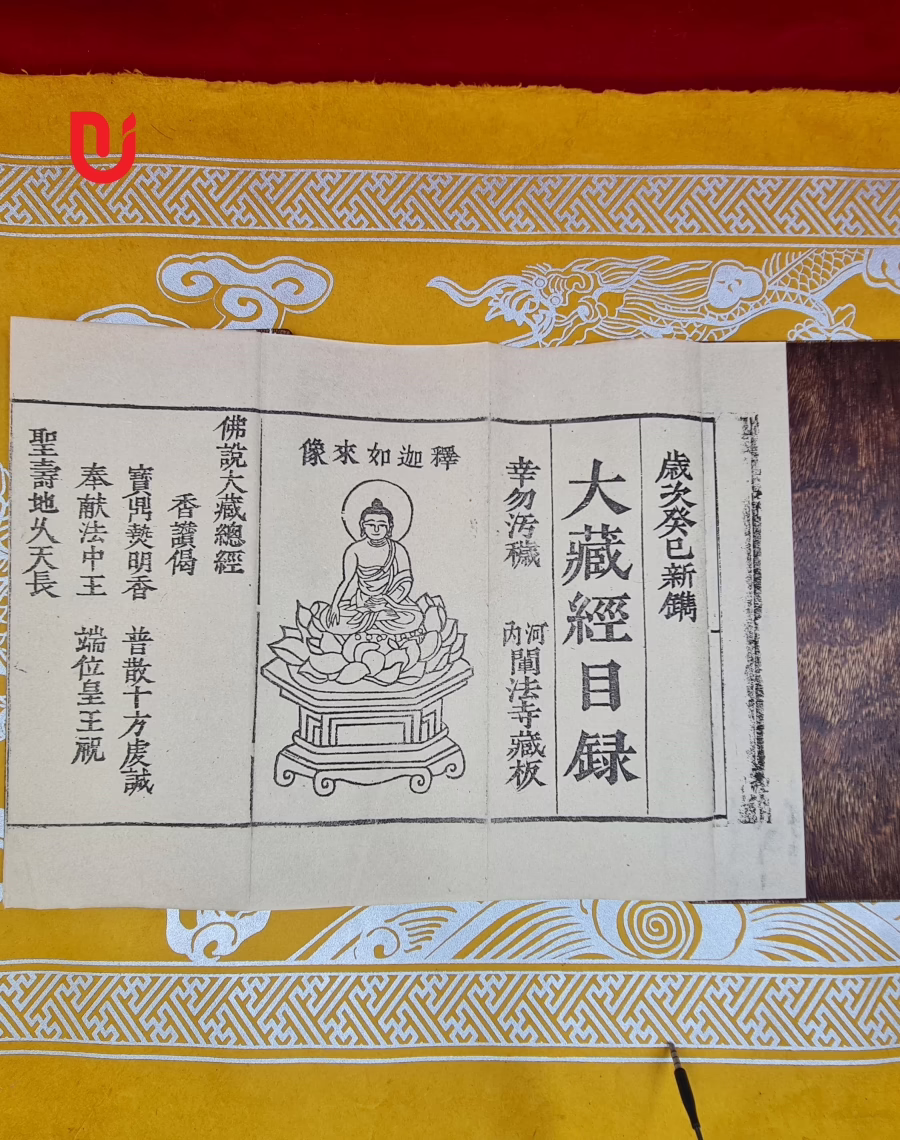 歳次癸巳新鐫
大藏經目録
幸勿汚穢 河内闡法寺藏板
釋迦如來像
佛說大藏總經
香讃偈
寶鼎爇明香 普散十方虔誠
奉献法中王 端位皇王祝
聖壽地久天長